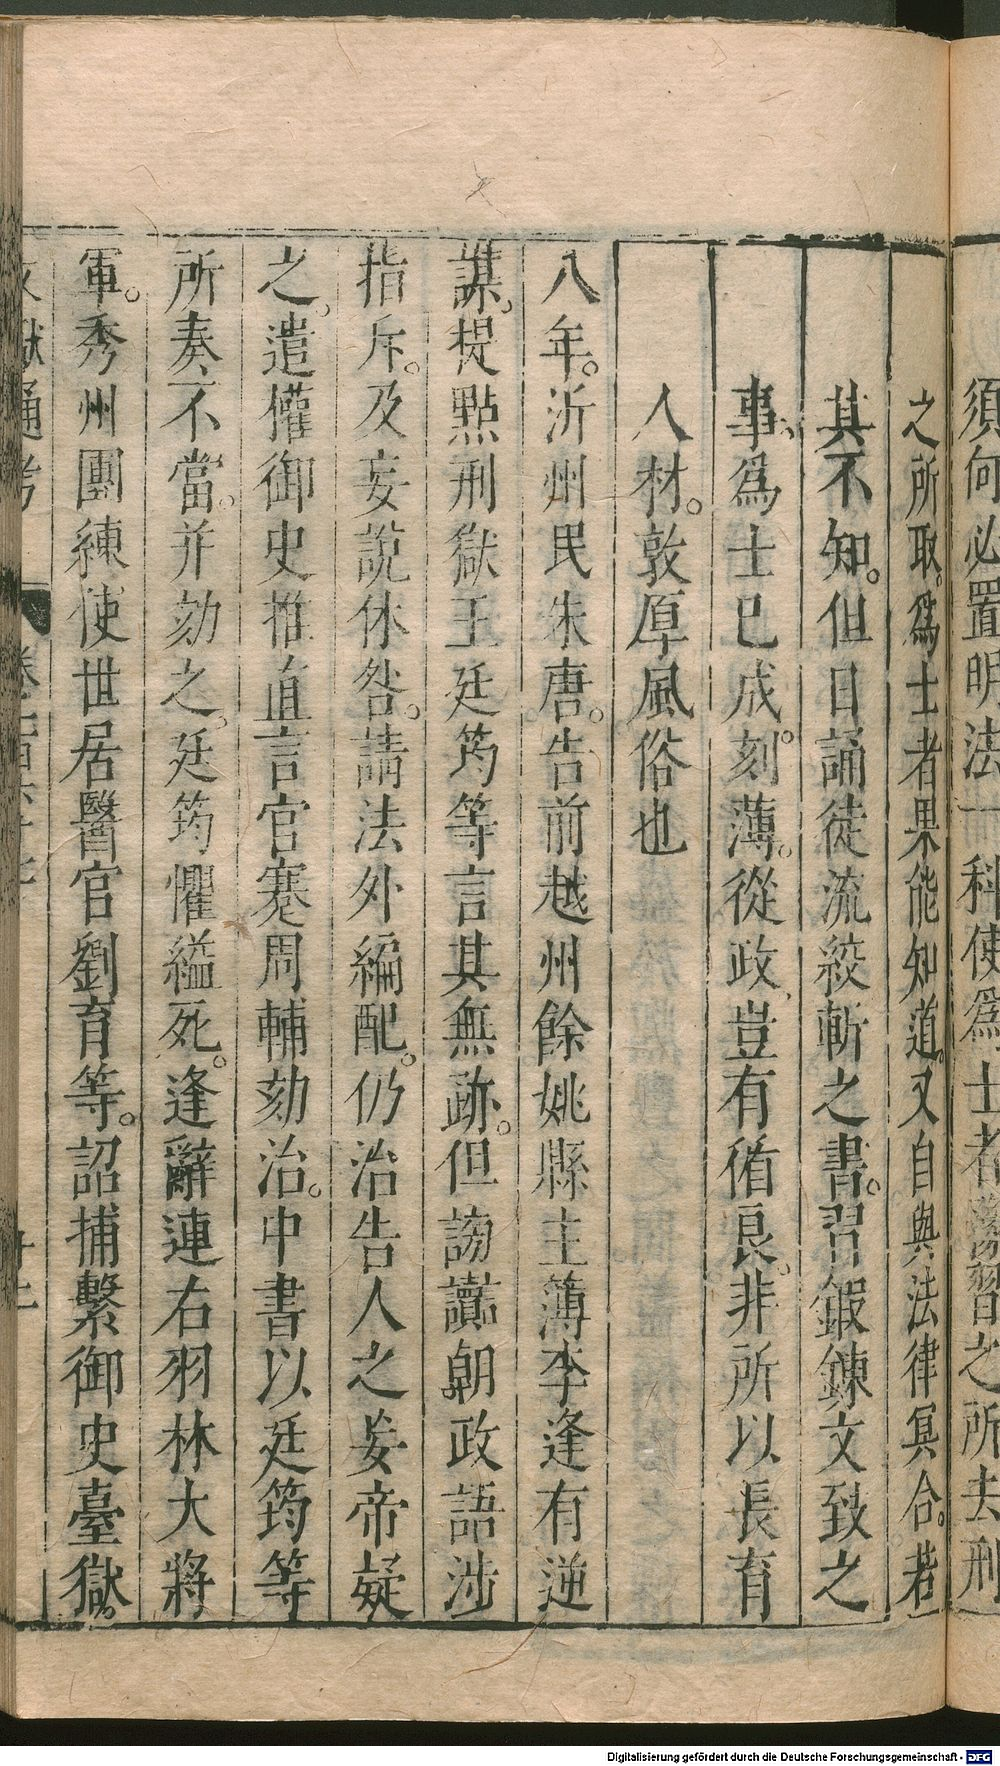 須何必置明法一科使爲士者豫習之所去刑
之所取。爲士者果能知道。又自與法律冥合。若
其不知。但日誦徒流絞斬之書。習鍛鍊文致之
事。爲士已成。刻薄。從政豈有循良。非所以長育
人材。敦厚風俗也
八年。沂州民朱唐。告前越州餘姚縣主簿李逢有逆
謀。提點刑獄王廷筠等言其無跡。但謗讟朝政語涉
指斥。及妄說休咎。請法外編配。仍治告人之妄帝疑
之。遣權御史推直言官蹇周輔劾治。中書以廷筠等
所奏不當。并劾之。廷筠懼縊死。逢辭連右羽林大將
軍。秀州團練使世居醫官劉育等。詔捕繫御史臺獄。
文獻通考 卷一百六十七
Digitalisierung gefördert durch die Deutsche Forschungsgemeinschaft - DFG